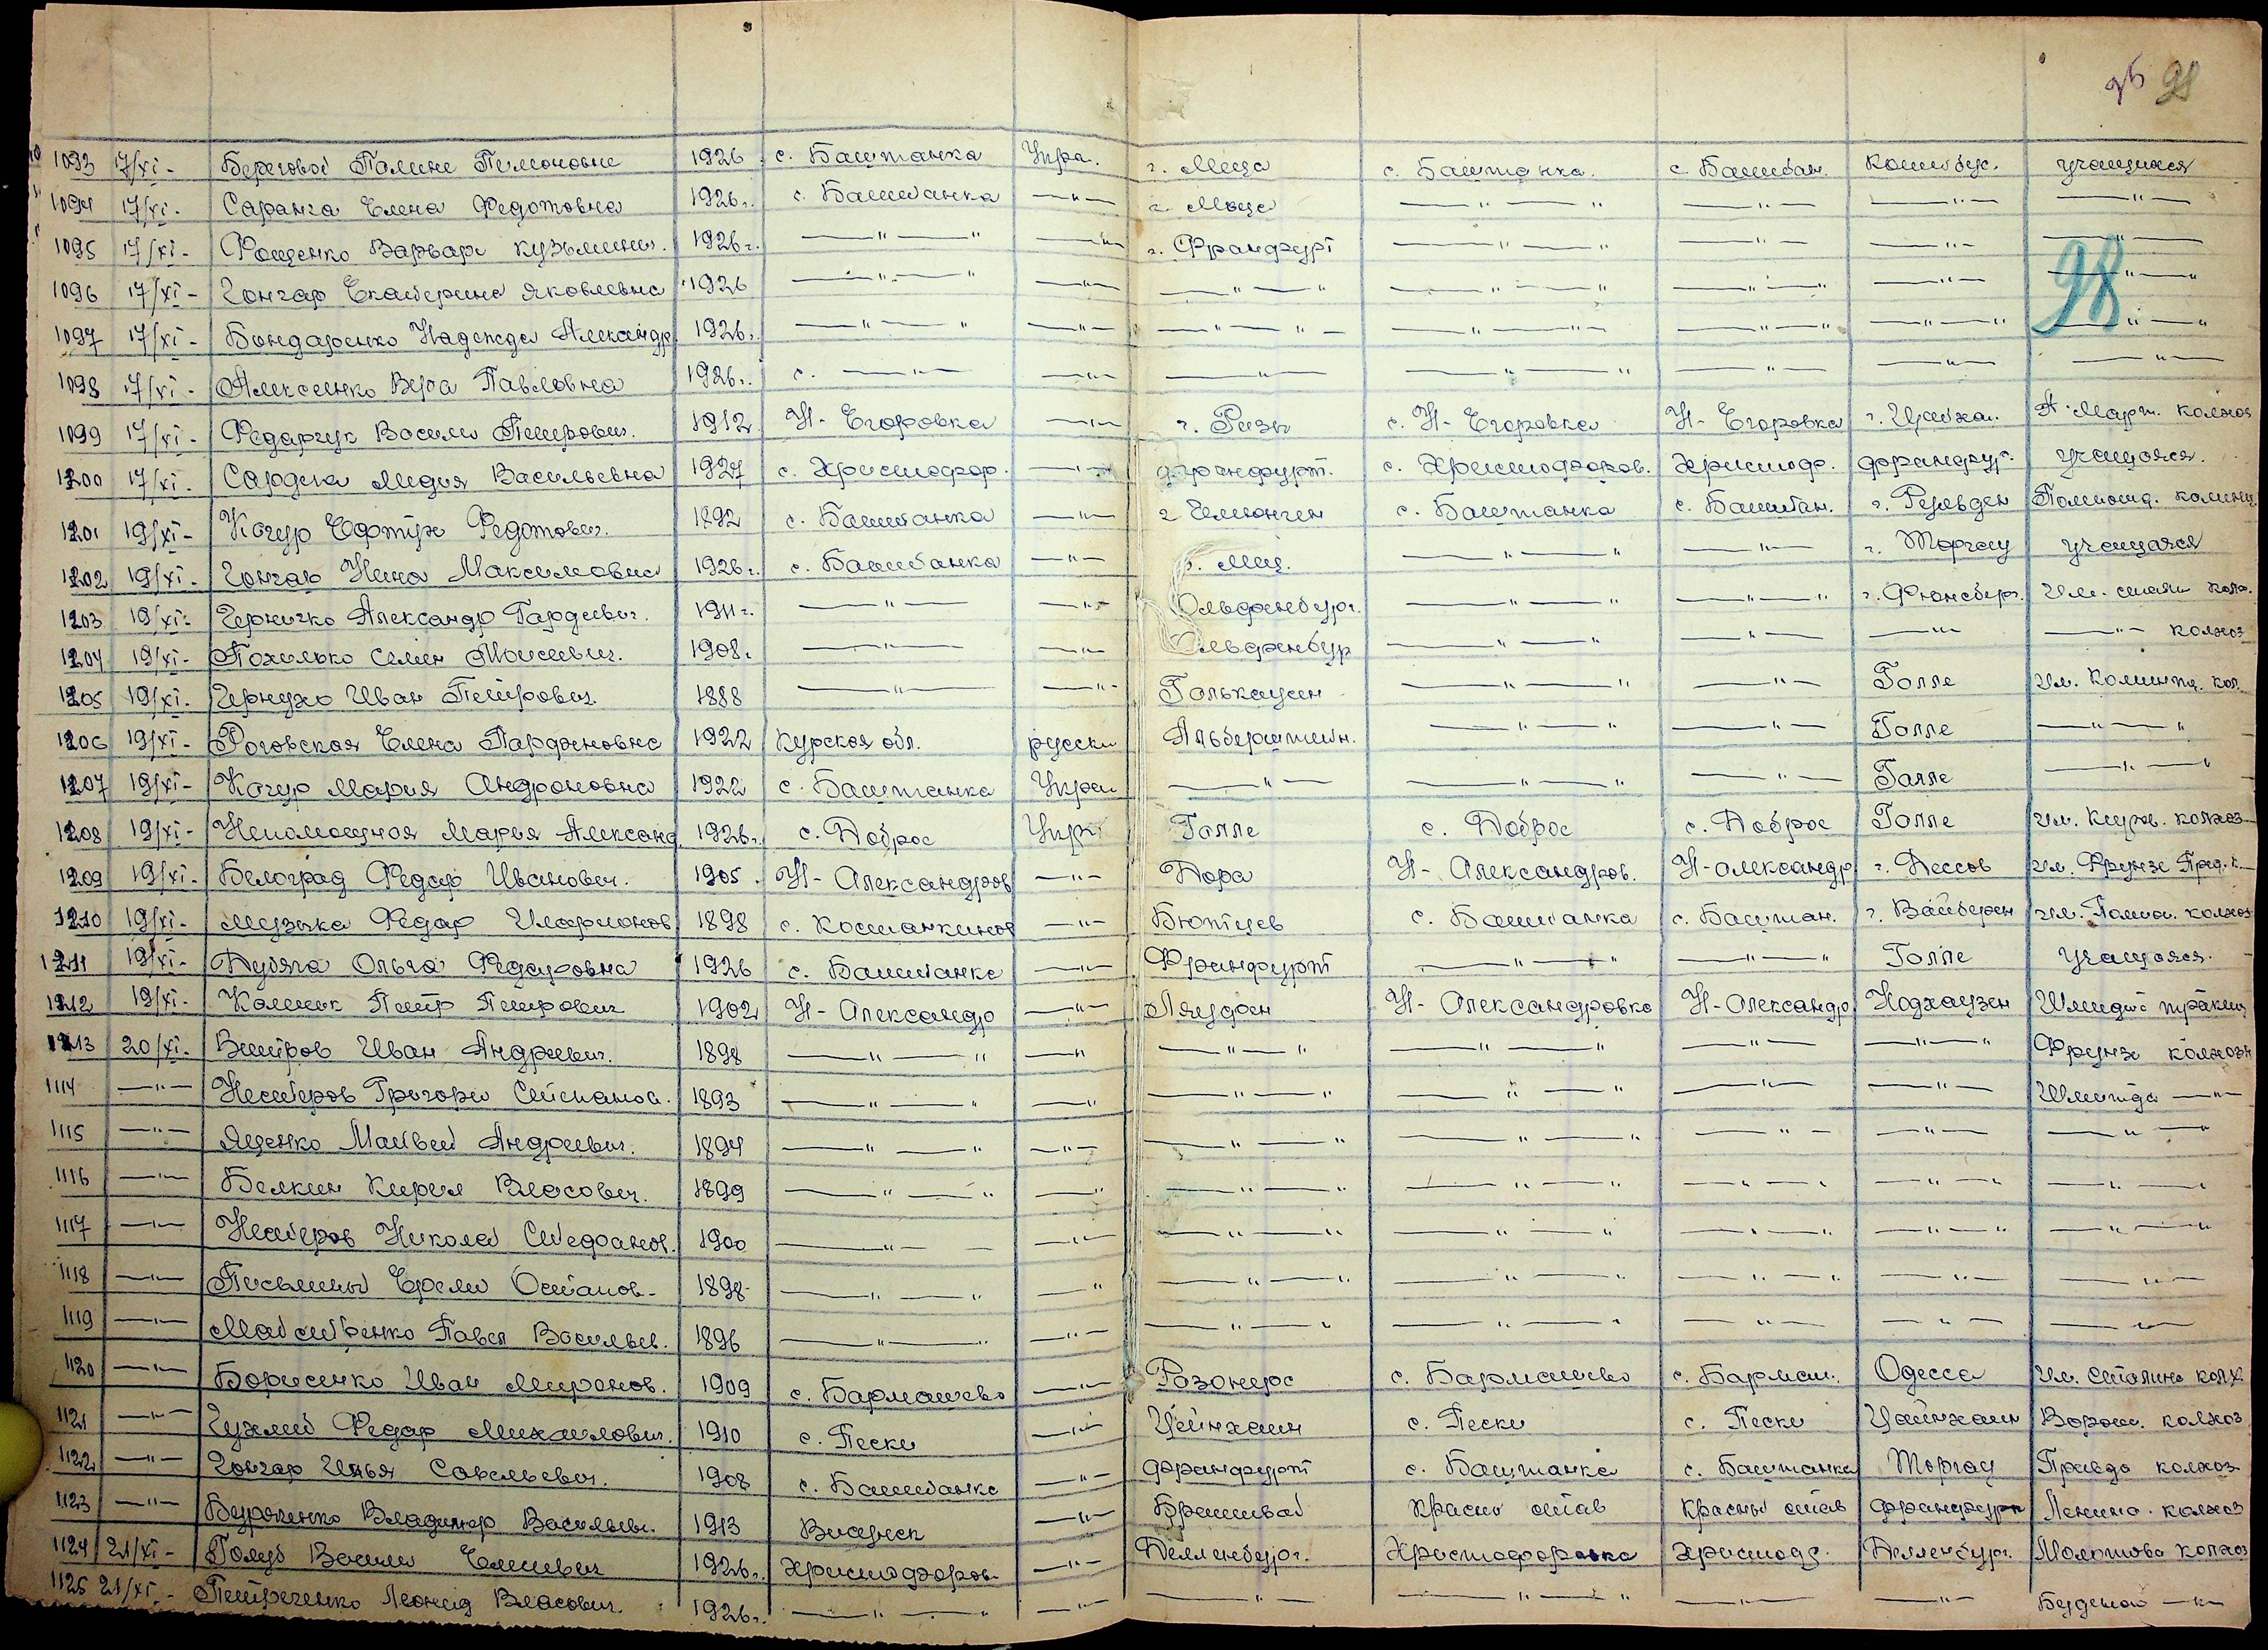 96 98
1093 17/XI- Береговой Полине Тимоновне 1926 с. Баштанка Укра. г. Меца с. Баштанка. с. Баштан. учащихся
1094 17/XI. Саранча Елена Федотовна 1926г. с. Баштанка —"— г. Меце —"—" —"— —"— —"—
1095 17/XI- Фощенко Варвара Кузьминич. 1926г. —"—" —"— г. Франфурт —"—" —"— —"— —"—
98
1096 17/XI- Гончар Екатерина Яковлевна 1926 —"—" —"— —"—" —"—" —"—" —"— —"—"
1097 17/XI- Бондаренко Надежда Александр 1926г. —"—" —"— —"—"— —"—"— —"—" —"—" —"—"
1098 17/XI- Алексеенко Вера Павловна 1926г. с. —"— —"— —"— —"—" —"— —"— —"—
1099 17/XI- Федарчук Василий Петрович. 1912 Н-Егоровка —"— г. Ризы с. Н-Егоровка Н-Егоровка г. 8 Март. колхоз
1200 17/XI. Сардека Лидия Васильевна 1927 с. Христофор. —"— франфурт. с. Христофоров. Христоф. франфур. учащаяся.
1201 19/XI- Качур Ефтух Федотович. 1892 с. Баштанка —"— г. с. Баштанка с. Баштан. г.
1202 19/XI. Гончар Нина Максимовна 1926г. с. Баштанка —"— г. Мец. —"—" —"— г. Торгау учащаяся
1203 19/XI- Черничко Александр Гордеевич. 1911г. —"— —"— Ольденбург. —"—" —"—" г. Фюнсберг. Им. стали колх.
1204 19/XI- Похилько Семен Моисеевич. 1908. —"— —"— Ольденбур —"—" —"— —"— —"— колхоз
1205 19/XI. Чернухо Иван Петрович 1888 —"— —"— Голькаузен —"—" —"— Голле Им. Коминт. кол.
1206 19/XI- Роговская Елена Парфеновна 1922 Курская обл. русски Альберштейн. —"—" —"— Голле —"—"
1207 19/XI- Качур Мария Андроновна 1922 с. Баштанка Украи —"— —"—" —"— Галле —"—"
1208 19/XI- Непомощная Мария Александ. 1926г. с. Доброе Укр. Галле с. Доброе с. Доброе Голле Им. Киров. колхоз
1209 19/XI- Белоград Федор Иванович. 1905. Н-Александров —"— Дора Н-Александров. Н-Александр г. Дессов Им. Фрунзе Пред. к.
1210 19/XI. Музыка Федор Иларионов 1898 с. —"— Бютцев с. Баштанка с. Баштан. г. Вайберен колхоз
1211 19/XI- Дубяга Ольга Федоровна 1926 с. Баштанке —"— Франфурт —"—" —"—" Голле учащаяся.
1212 19/XI. Колмык Петр Петрович 1902 Н-Александр —"— Н-Александровка Н-Александр Нодхаузен
1213 20/XI. Ветров Иван Андреевич. 1898 —"—" —"— —"—" —"—" —"— —"— Фрунзе колхозн
1114 —"— Нестеров Григорий Степанов. 1893 —"—" —"— —"—" —"—" —"— —"— Шмитда —"—
1115 —"— Яценко Матвей Андреевич. 1894 —"—" —"— —"—" —"—" —"— —"— —"—"
1116 —"— Белкин Кирил Власович. 1899 —"—" —"— —"—" —"—" —"—" —"—" —"—"
1117 —"— Нестеров Николай Стефанов. 1900 —"— —"— —"—" —"—" —"—" —"—" —"—"
1118 —"— Письменый Остапов- 1898- —"—" —" —"—" —"—" —"—" —"—" —"—
1119 —"— Павел Васильев. 1896 —"—" —"— —"—" —"—" —"— —"— —"—
1120 —"— Борисенко Иван Миронов. 1909 с. Бармашево —"— с. Бармашево с. Бармаш. Одесса Им. Сталина колх
1121 —"— Федор Михайлович. 1910 с. Пески —"— Цейнхаин с. Пески с. Пески Цайнхаин Ворош. колхоз
1122 —"— Гончар Илья Савельевич. 1908 с. Баштанке —"— франфурт с. Баштанке с. Баштанка Торгау Правда колхоз
1123 —"— Бурченко Владимир Васильев. 1913 Висунск —"— Красны став Красный став франфурт Ленина. колхоз
1124 21/XI- Голуб Василий Емельевич 1926г. Христофоров. —"— Белленбург. Христофоровка Христоф. Белленбург. Молотова колхоз
1125 21/XI.- Петреченко Леонид Власович. 1926г. —"—" —"— —"— —"—" —"— —"— Будено —"—